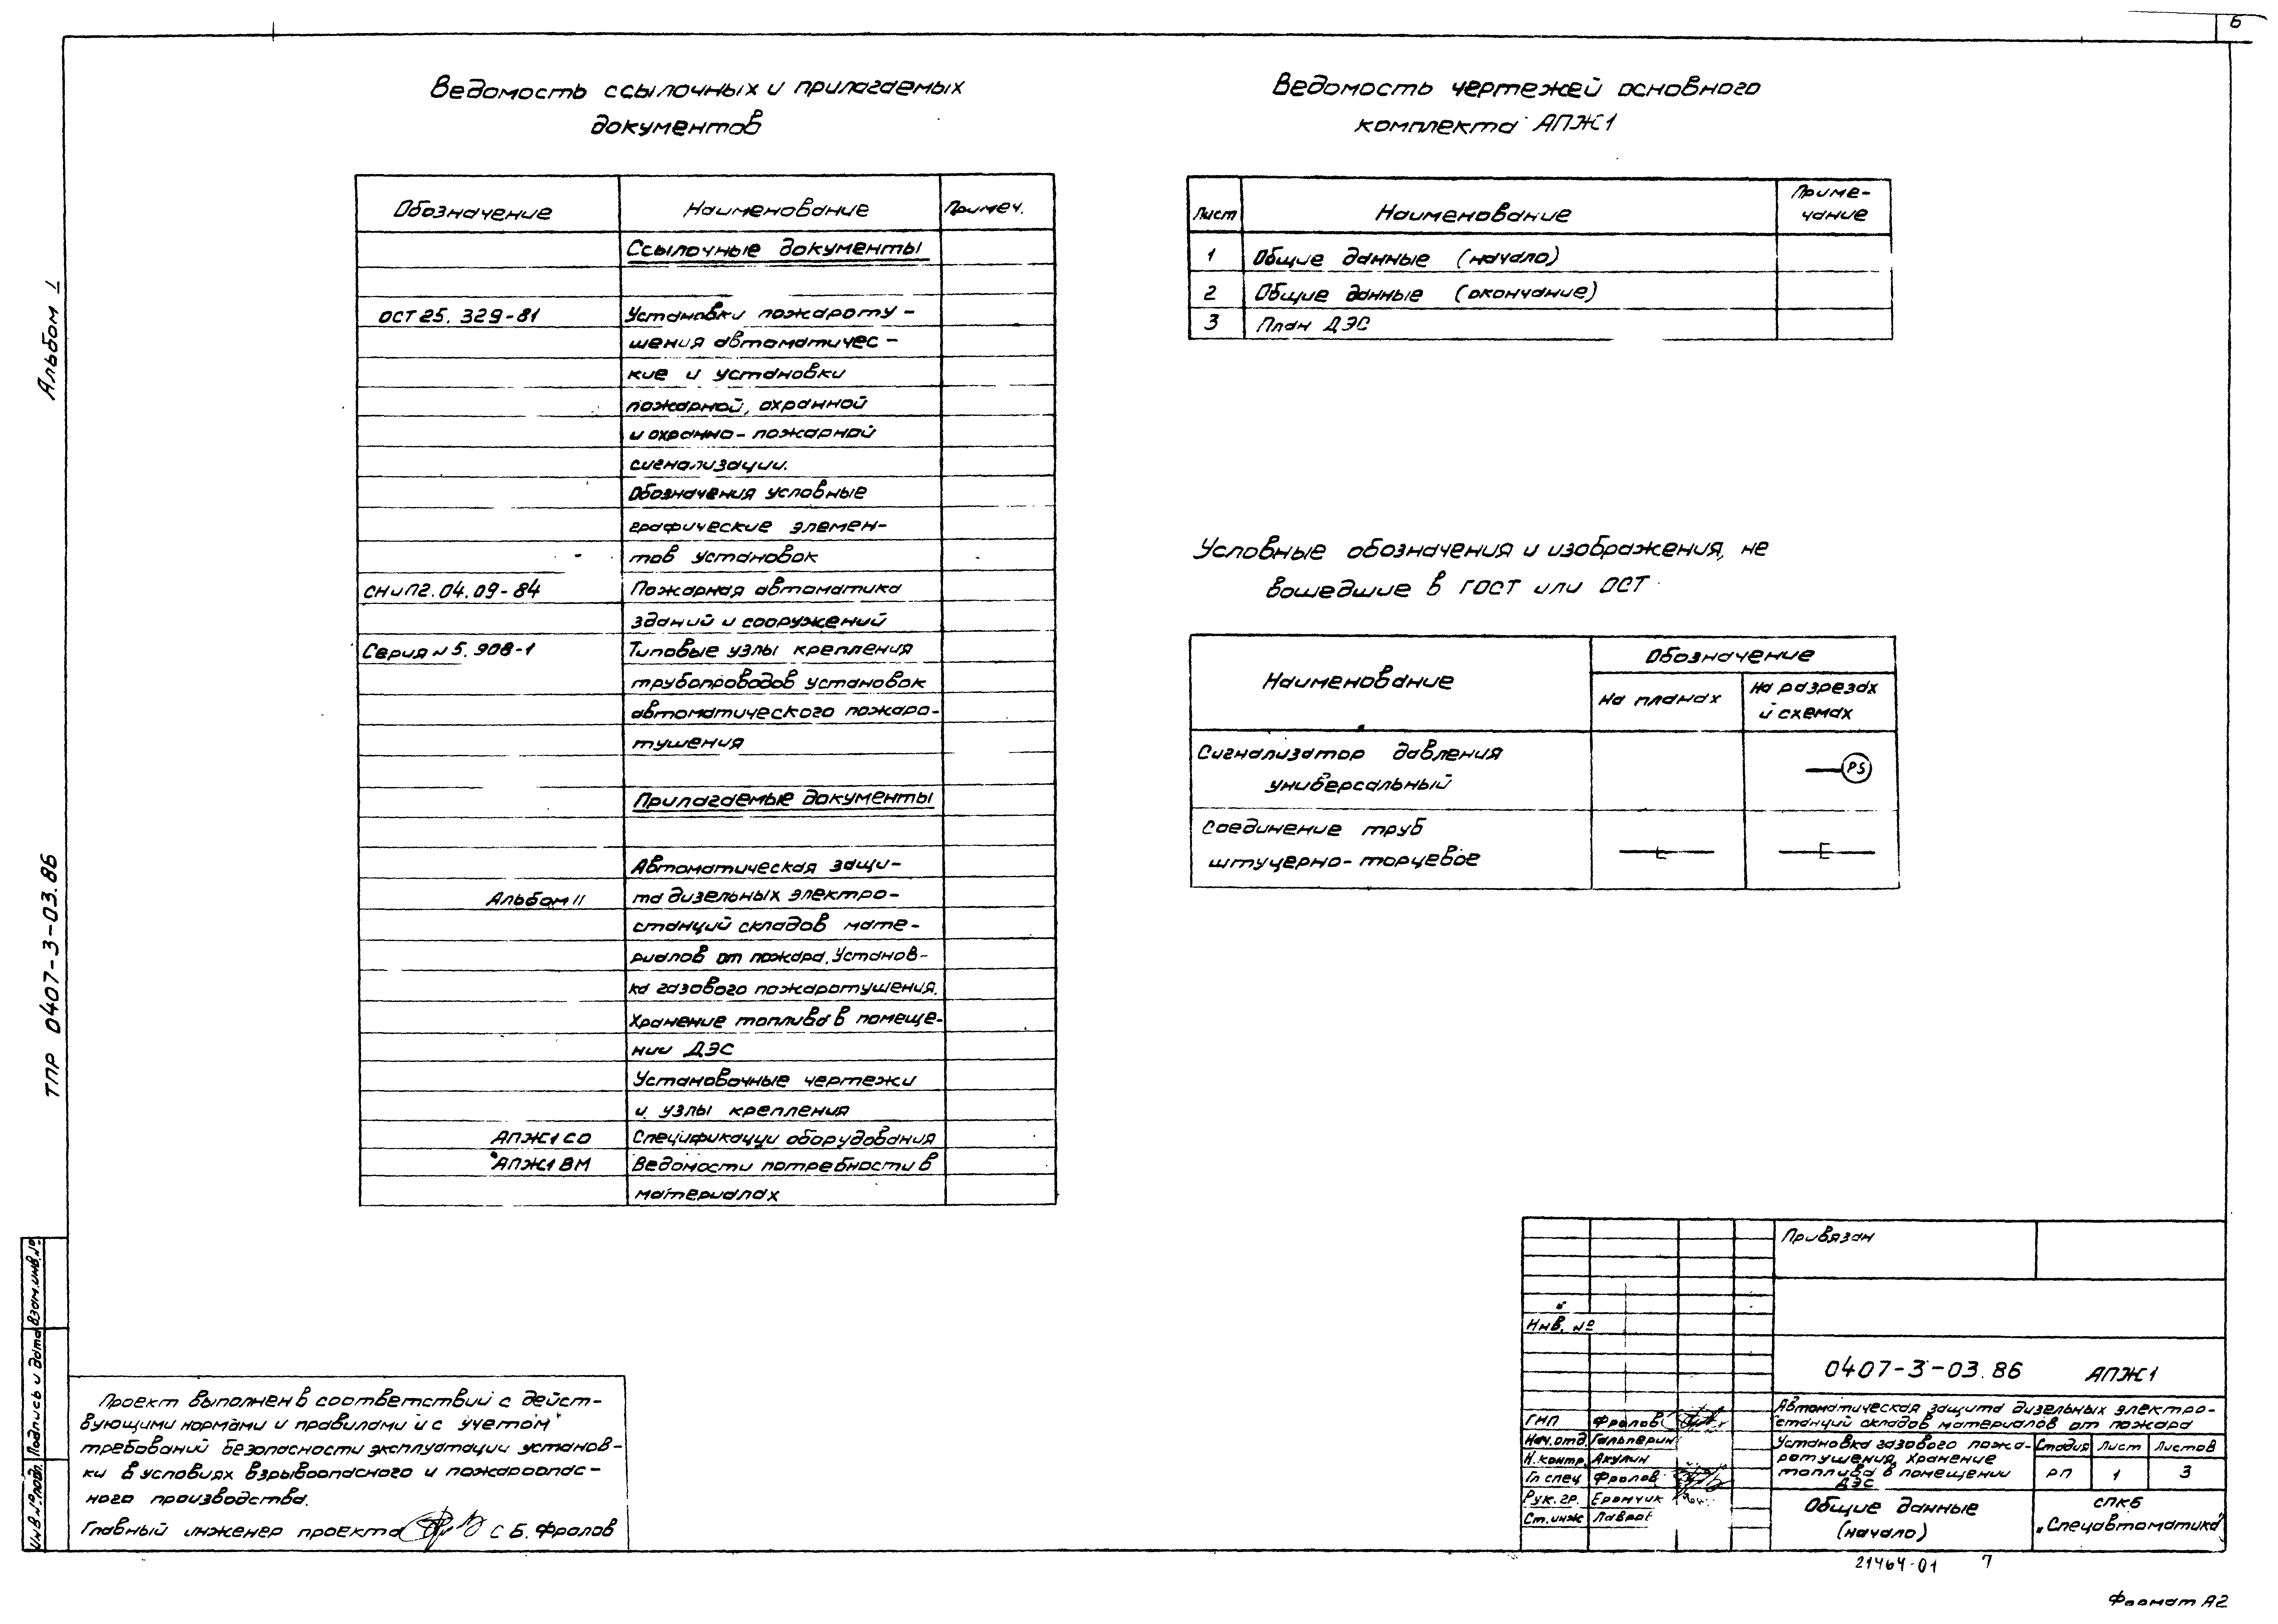 6
Альбом I
ТПР 0407-3-03.86
Ведомость ссылочных и прилагаемых
документов
Обозначение Наименование Примеч.
Ссылочные документы
ОСТ 25.329-81 Установки пожароту-
шения автоматичес-
кие и установки
пожарной, охранной
и охранно-пожарной
сигнализации.
Обозначения условные
графические элемен-
тов установок
СНиП2.04.09-84 Пожарная автоматика
зданий и сооружений
Серия №5.908-1 Типовые узлы крепления
трубопроводов установок
автоматического пожаро-
тушения
Прилагаемые документы
Автоматическая защи-
Альбом II та дизельных электро-
станций складов мате-
риалов от пожара. Установ-
ка газового пожаротушения.
Хранение топлива в помеще-
нии ДЭС
Установочные чертежи
и узлы крепления
АПЖ1 СО Спецификации оборудования
АПЖ1 ВМ Ведомости потребности в
материалах
Ведомость чертежей основного
комплекта АПЖ1
Лист Наименование Приме-
чание
1 Общие данные (начало)
2 Общие данные (окончание)
3 План ДЭС
Условные обозначения и изображения, не
вошедшие в ГОСТ или ОСТ
Наименование Обозначение
На планах На разрезах
и схемах
Сигнализатор давления
универсальный
PS
Соединение труб
штуцерно-торцевое
Взам.инв.№
Подпись и дата
Инв.№подл.
Проект выполнен в соответствии с дейст-
вующими нормами и правилами и с учетом
требований безопасности эксплуатации установ-
ки в условиях взрывоопасного и пожароопас-
ного производства.
Главный инженер проекта С Б. Фролов
Привязан
Инв. №
0407-3-03.86 АПЖ1
Автоматическая защита дизельных электро-
станций складов материалов от пожара
ГИП Фролов
Нач.отд. Гальперин
Н.контр. Акулин
Гл спец Фролов
Рук.гр. Ерончик
Ст.инж Лавров
Установка газового пожа-
ротушения, Хранение
топлива в помещении
ДЭС
Стадия Лист Листов
РП 1 3
Общие данные
(начало)
СПКБ
"Спецавтоматика"
21464-01 7
Формат А2